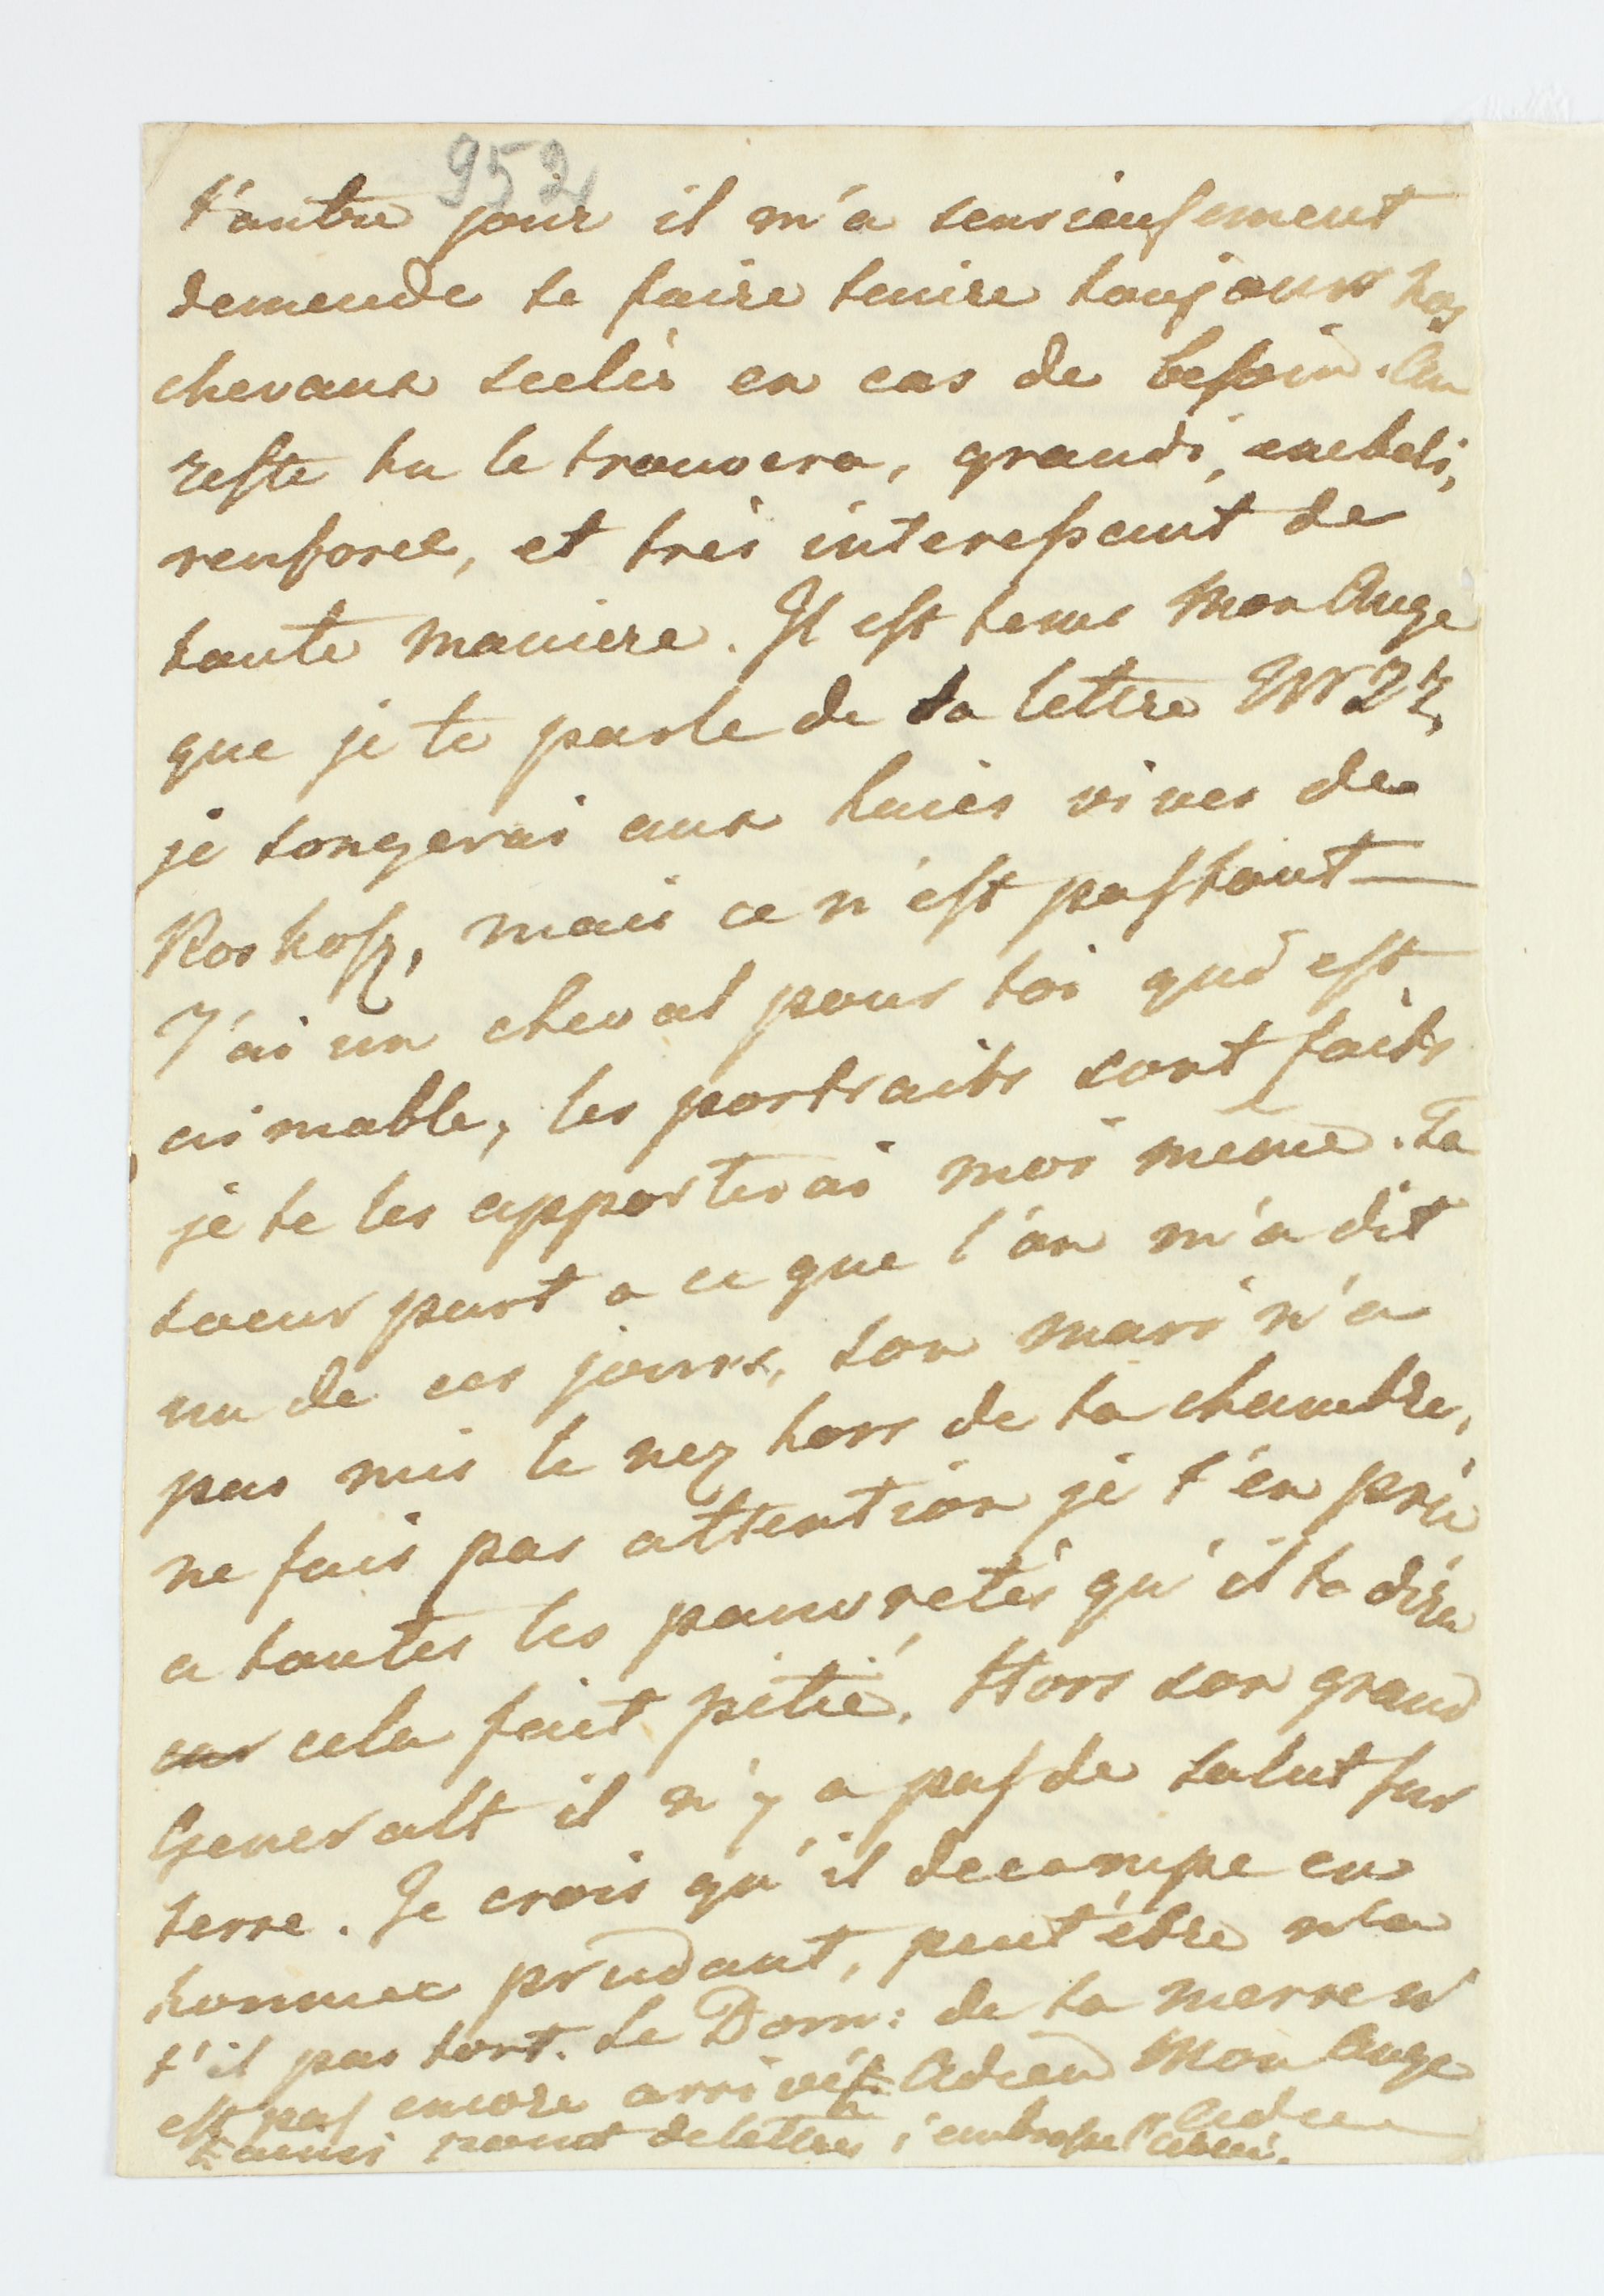 952
l'autre jour il m'a serieusement
demende de faire tenire toujours tes
chevaux sellés en cas de besoin. Au
reste tu le trouvera, grandi, embeli,
renforcé, et très interessant de
toute maniere. Il est tems Mon Ange
que je te parle de ta lettre
je songerai aux haies vives de
Roskoss, mais ce n'est pas tout
J'ai un cheval pour toi qui est
aimable, les portraits sont faits
je te les apporterai moi même. Ta
soeur part a ce que l'on m'a dit
un de ces jours, son mari n'a
pas mis le nez hors de sa chambre,
ne fais pas attention je t'en prie
a toutes les pauvretés qu'il te dira
car cela fait pitié. Hors son grand
Generalt il n'y a pas de salut sur
terre. Je crois qu'il decampe en
homme prudant, peut être n'a
t'il pas tort. Le Dom: de ta merre n'
est pas encore arrivé. Adieu Mon Ange
de lettres j'embrasse Adieu